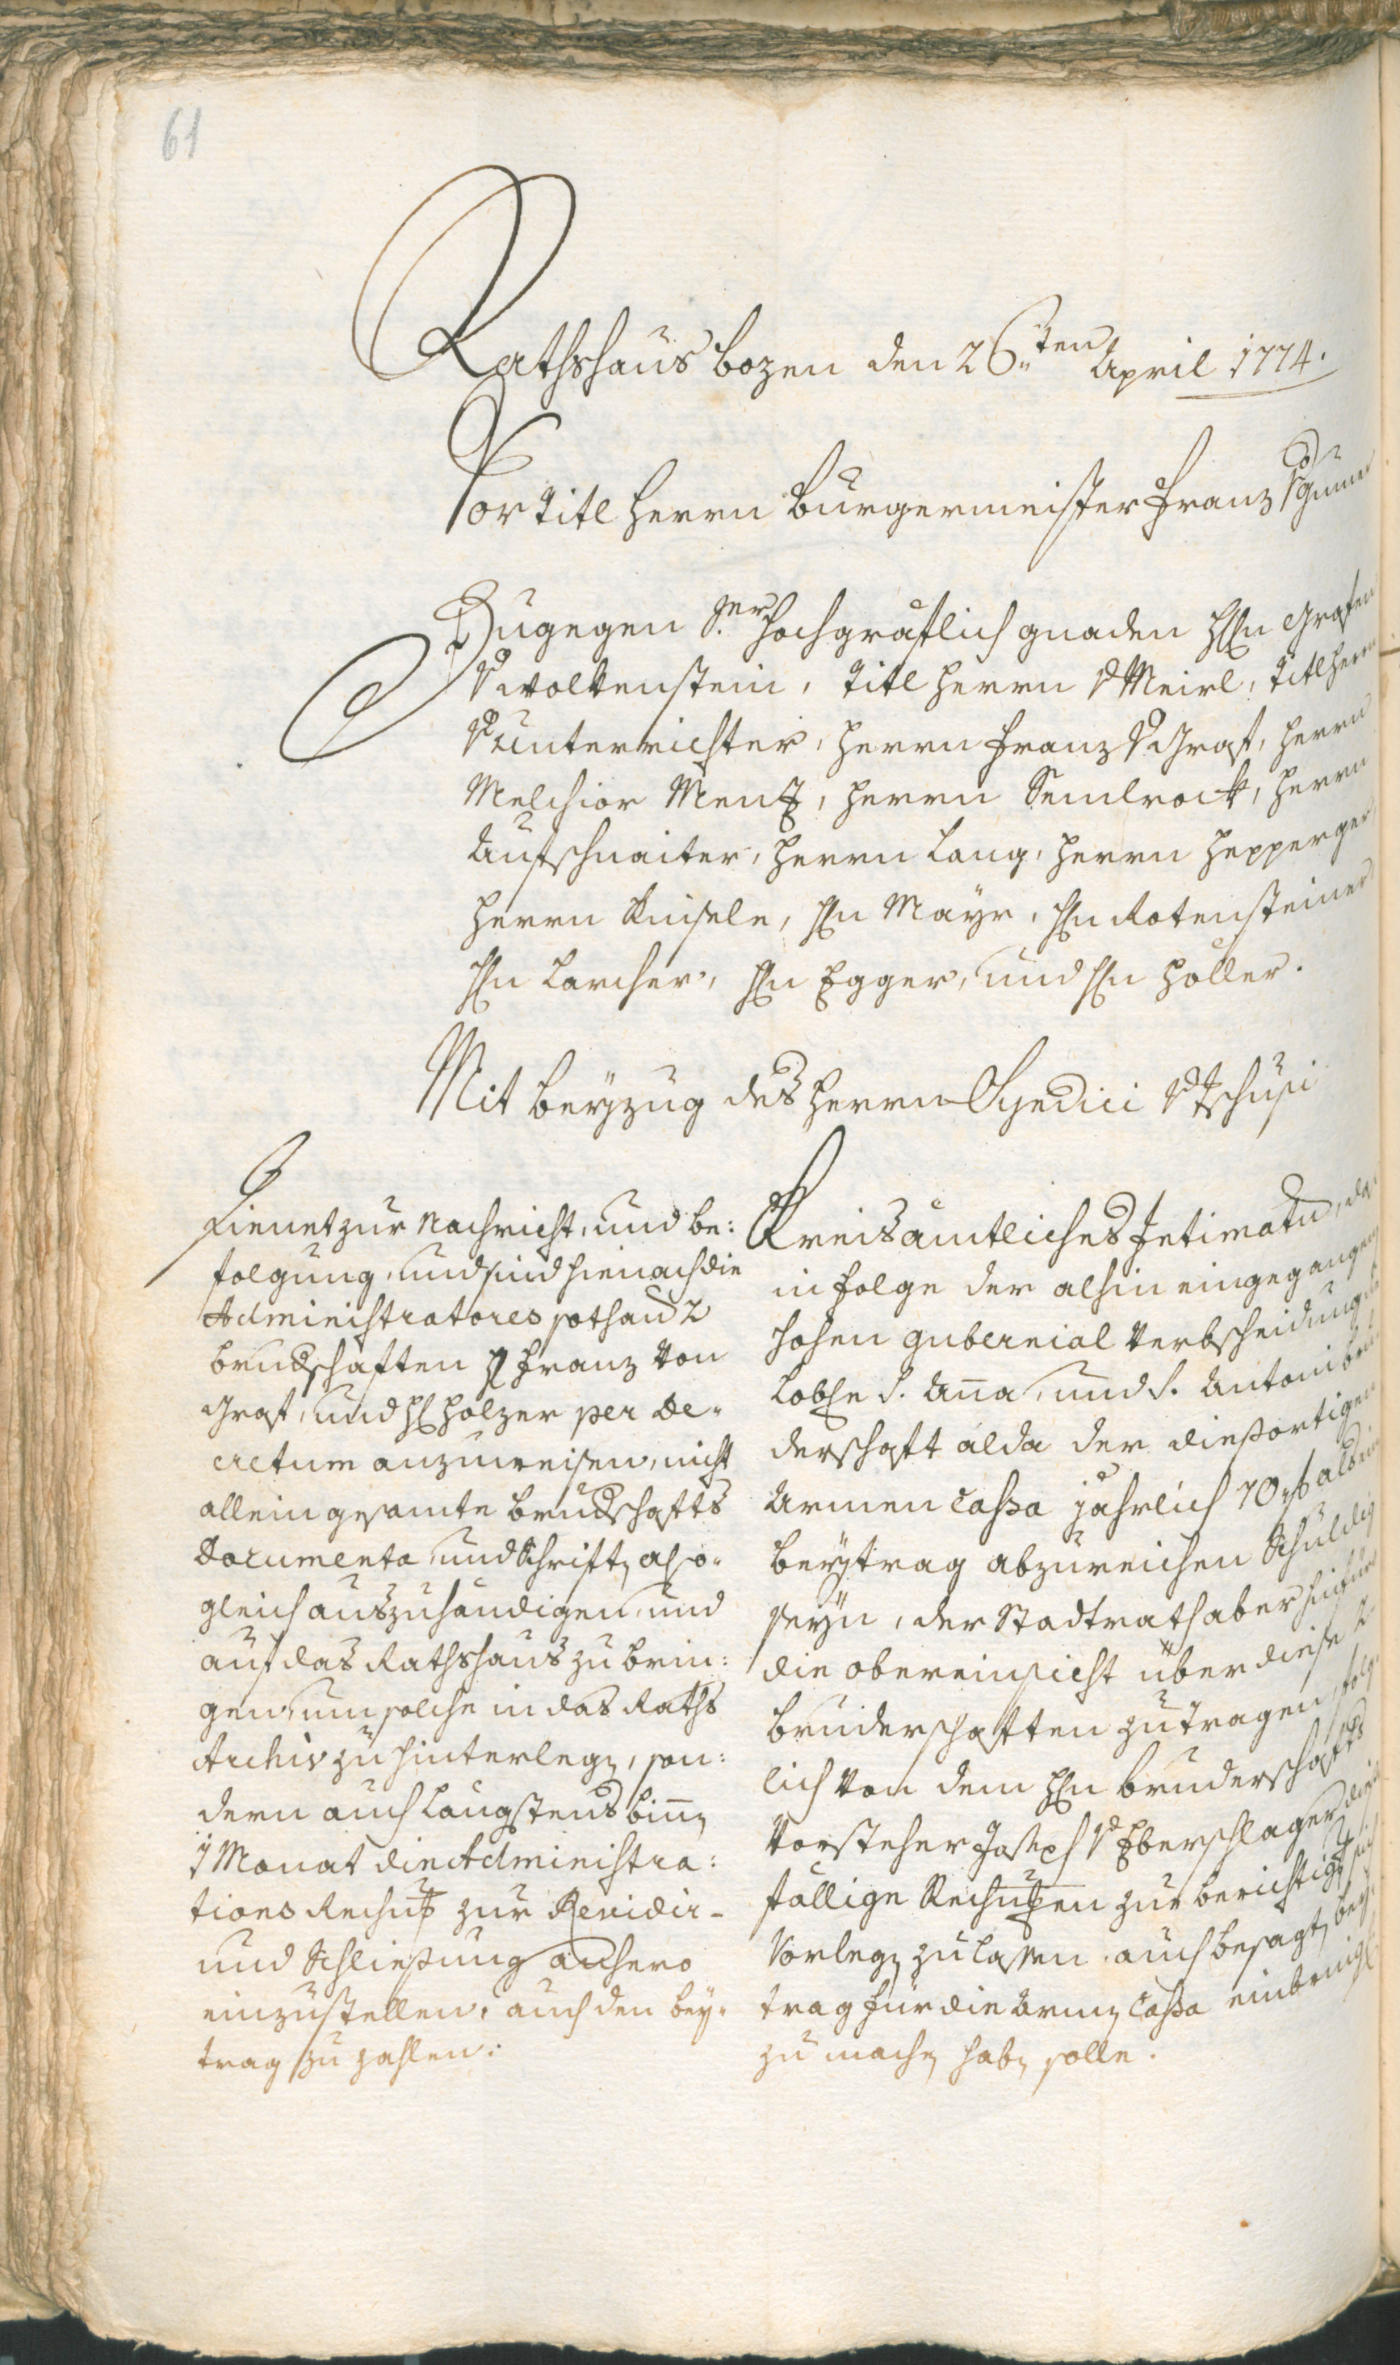 61
Rathshaus Bozen den 26.ten April 1774.
Vor Titl Herrn Burgermeister Franz v Gumer
Zugegen S.er Hochgräflich gnaden H̃n Grafen
v Wolkenstein, Titl Herrn v Meirl, Titl Herrn
v Unterrichter, Herrn Franz v Graf, Herrn
Melchior Menz, Herrn Semlrock, Herrn
Aufschnaiter, Herrn Lang, Herrn Hepperger
Herrn Knisele, H̃n Mayr, H̃n Rotensteiner
H̃n Larcher, H̃n Egger, und H̃n Holler.
Mit beyzug des Herrn Syndici v Tschusi
Dienet zur Nachricht, und be:
folgung, und sind hienach die
Administratores sothand 2
brudschaften H Franz von
Graf, und H Holzer per De-
cretum anzuweisen, nicht
allein gesamte brudschafts
Documenta und Schriftn also-
gleich auszuhändigen, und
auf das Rathshaus zu brin:
gen, um solche in das Raths
Archiv zu hinterlegn, son:
dern auch langstens binnen
1 Monat die Administra:
tions Rechnung zur Revidir-
und Schließung anhero
einzustellen, auch den bey-
trag zu zahlen.
Kreisämtliches Intimatum, das
in folge der alhin eingegangen
hohen gubernial Verbscheidung
lobl S. Anna, und S. Antoni bru
derschaft alda der diesortigen
Armen Cassa jährlich 70 f als ein
beytrag abzureichen Schuldig
seyn, der Stadtrath aber hinfür
die obereinsicht über diese 2
bruderschaften zutragen, folg
lich von dem H̃n bruderschafts
Vorsteher Joseph v Eberschlager die
fällige Rechnungen zur berichtig
Vorlegn zu lassen auch besagtn bey
trag für die Armn Cassa einbringl
zu machn habn solle.